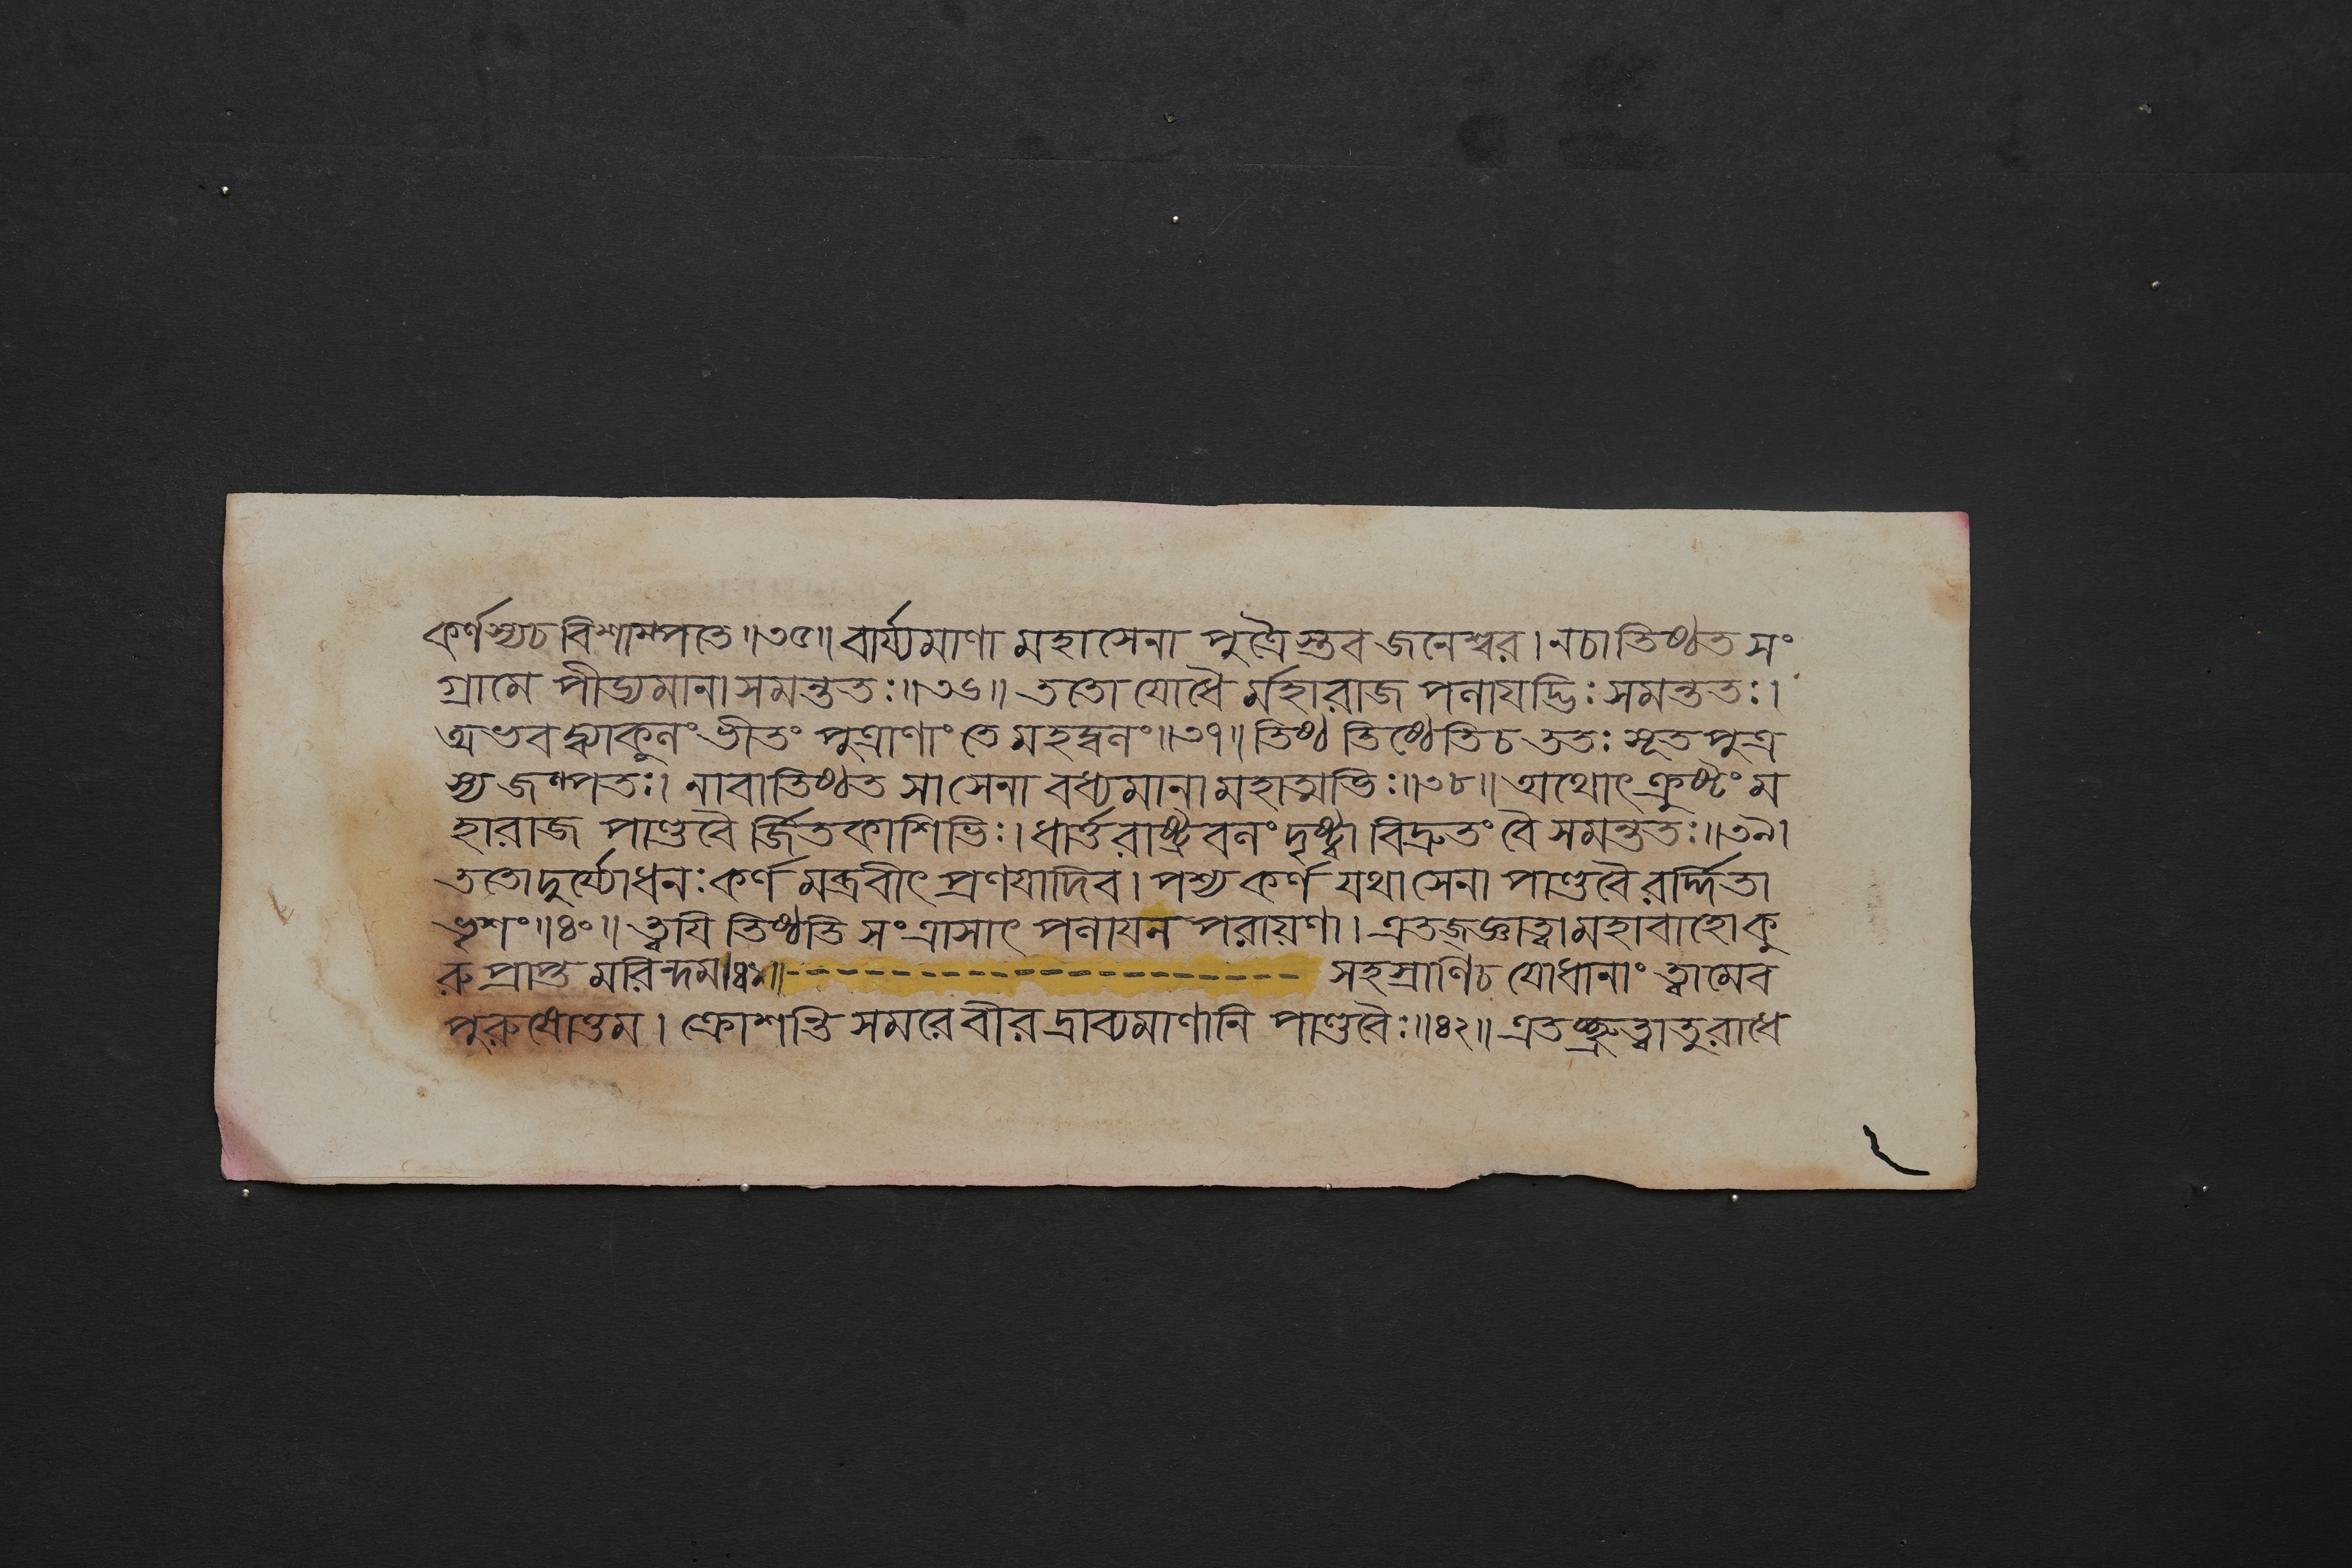 কর্ণস্যচ বিশাম্পতে॥৩৫॥ বার্য্যমাণা মহাসেনা পুত্রৈস্তব জনেশ্বর। নচাতিষ্ঠত সং
গ্রামে পীড্যমানা সমন্ততঃ॥৩৬॥ ততো যোধৈ র্মহারাজ পলাযদ্ভিঃ সমন্ততঃ।
অভবদ্ব্যাকুলং ভীতং পুত্রাণাং তে মহদ্বলং॥৩৭॥ তিষ্ঠ তিষ্ঠেতি চ ততঃ সূতপুত্র
স্য জল্পতঃ। নাবাতিষ্ঠত সা সেনা বধ্যমানা মহাত্মভিঃ॥৩৮॥ অথোৎক্রুষ্টং ম
হারাজ পাণ্ডবৈ র্জিতকাশিভিঃ। ধার্ত্তরাষ্ট্রবলং দৃষ্ট্বা বিদ্রুতং বৈ সমন্ততঃ॥৩৯।
ততোদুর্য্যোধনঃ কর্ণ মব্রবীৎ প্রণযাদিব। পশ্য কর্ণ যথাসেনা পাণ্ডবৈ রর্দ্দিতা
ভৃশং॥৪০॥ ত্বযি তিষ্ঠতি সংত্রাসাৎ পলাযন পরায়ণা। এতজ্জ্ঞাত্বা মহাবাহো কু
রু প্রাপ্ত মরিন্দম॥৪১॥-------------------------- সহস্রাণিচ যোধানাং ত্বামেব
পুরুষোত্তম। ক্রোশন্তি সমরে বীর দ্রাব্যমাণানি পাণ্ডবৈঃ॥৪২॥ এতচ্ছ্রুত্বা তু রাধে